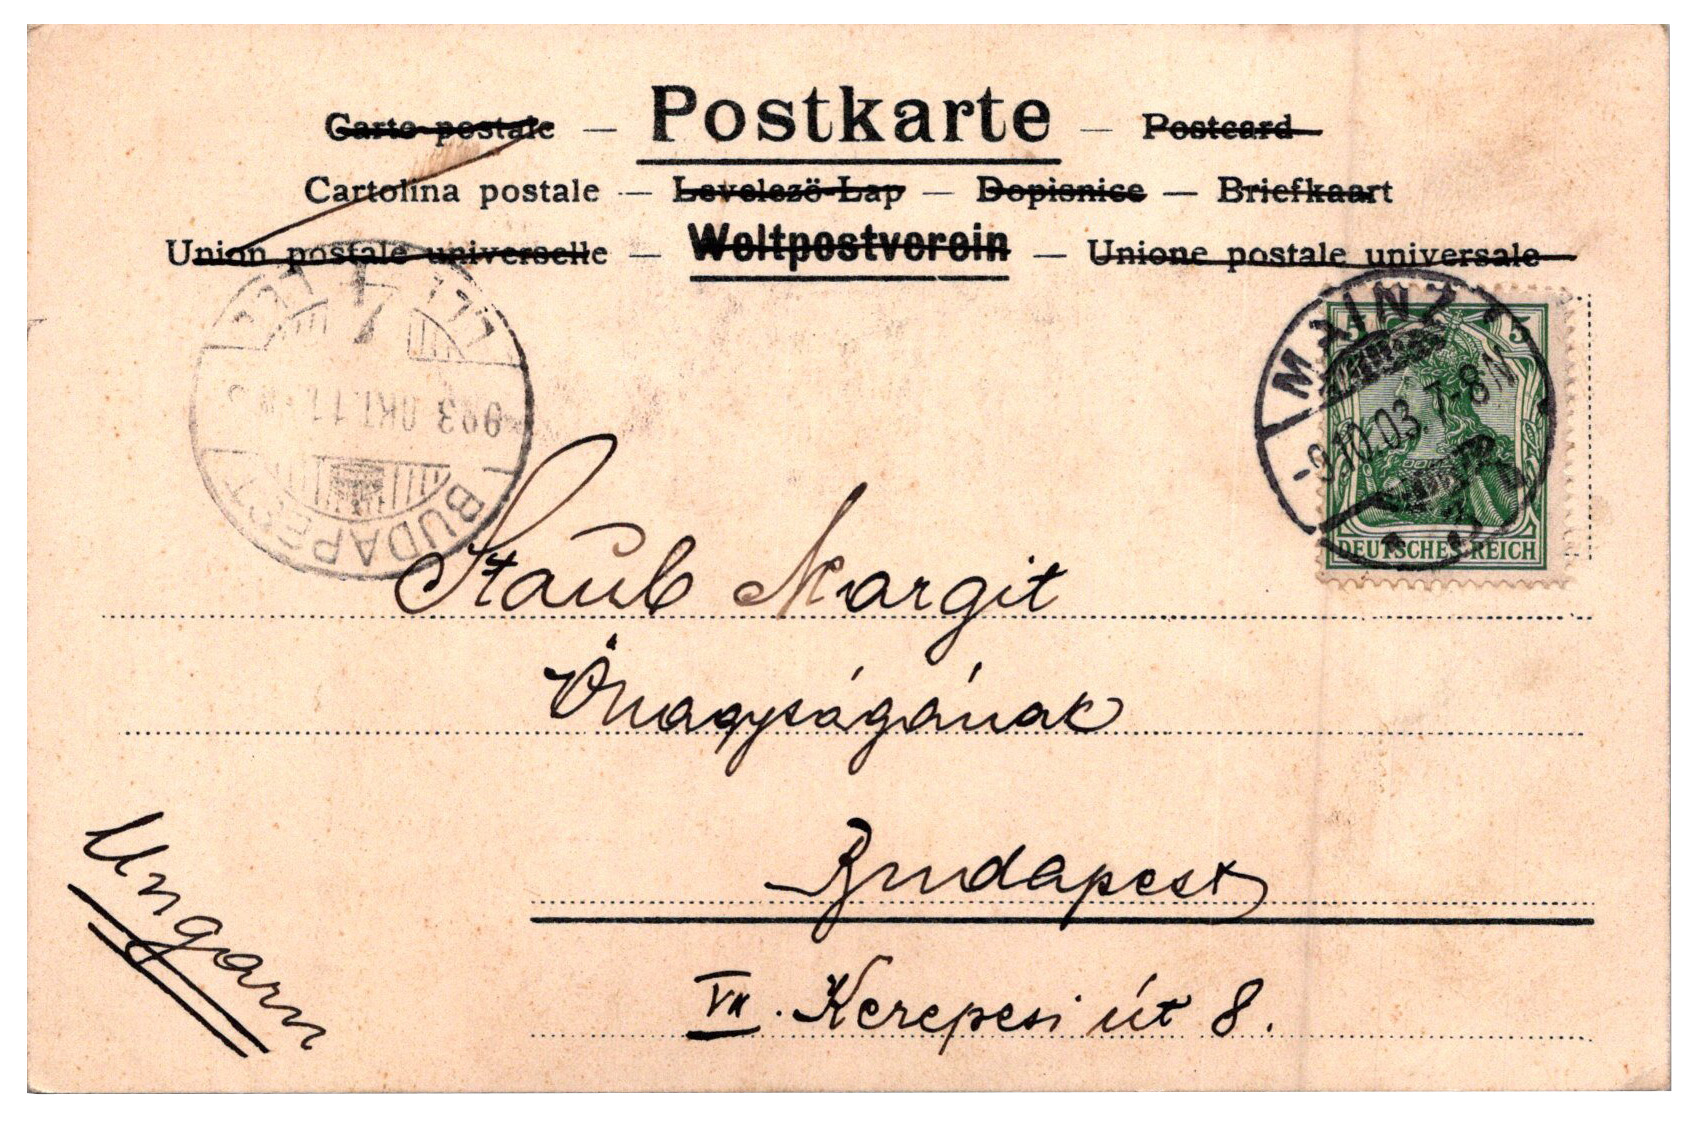 Carte postale — Postkarte — Postcard
Cartolina postale — Levelező-Lap — Dopisnice — Briefkaart
Union postale universelle — Weltpostverein — Unione postale universale
MAINZ
10.03. 7-8N
5
DEUTSCHES REICH
BUDAPEST
903 OKT. 11
Staub Margit
Önagyságának
Budapest
VII. Kerepesi út 8.
Ungarn